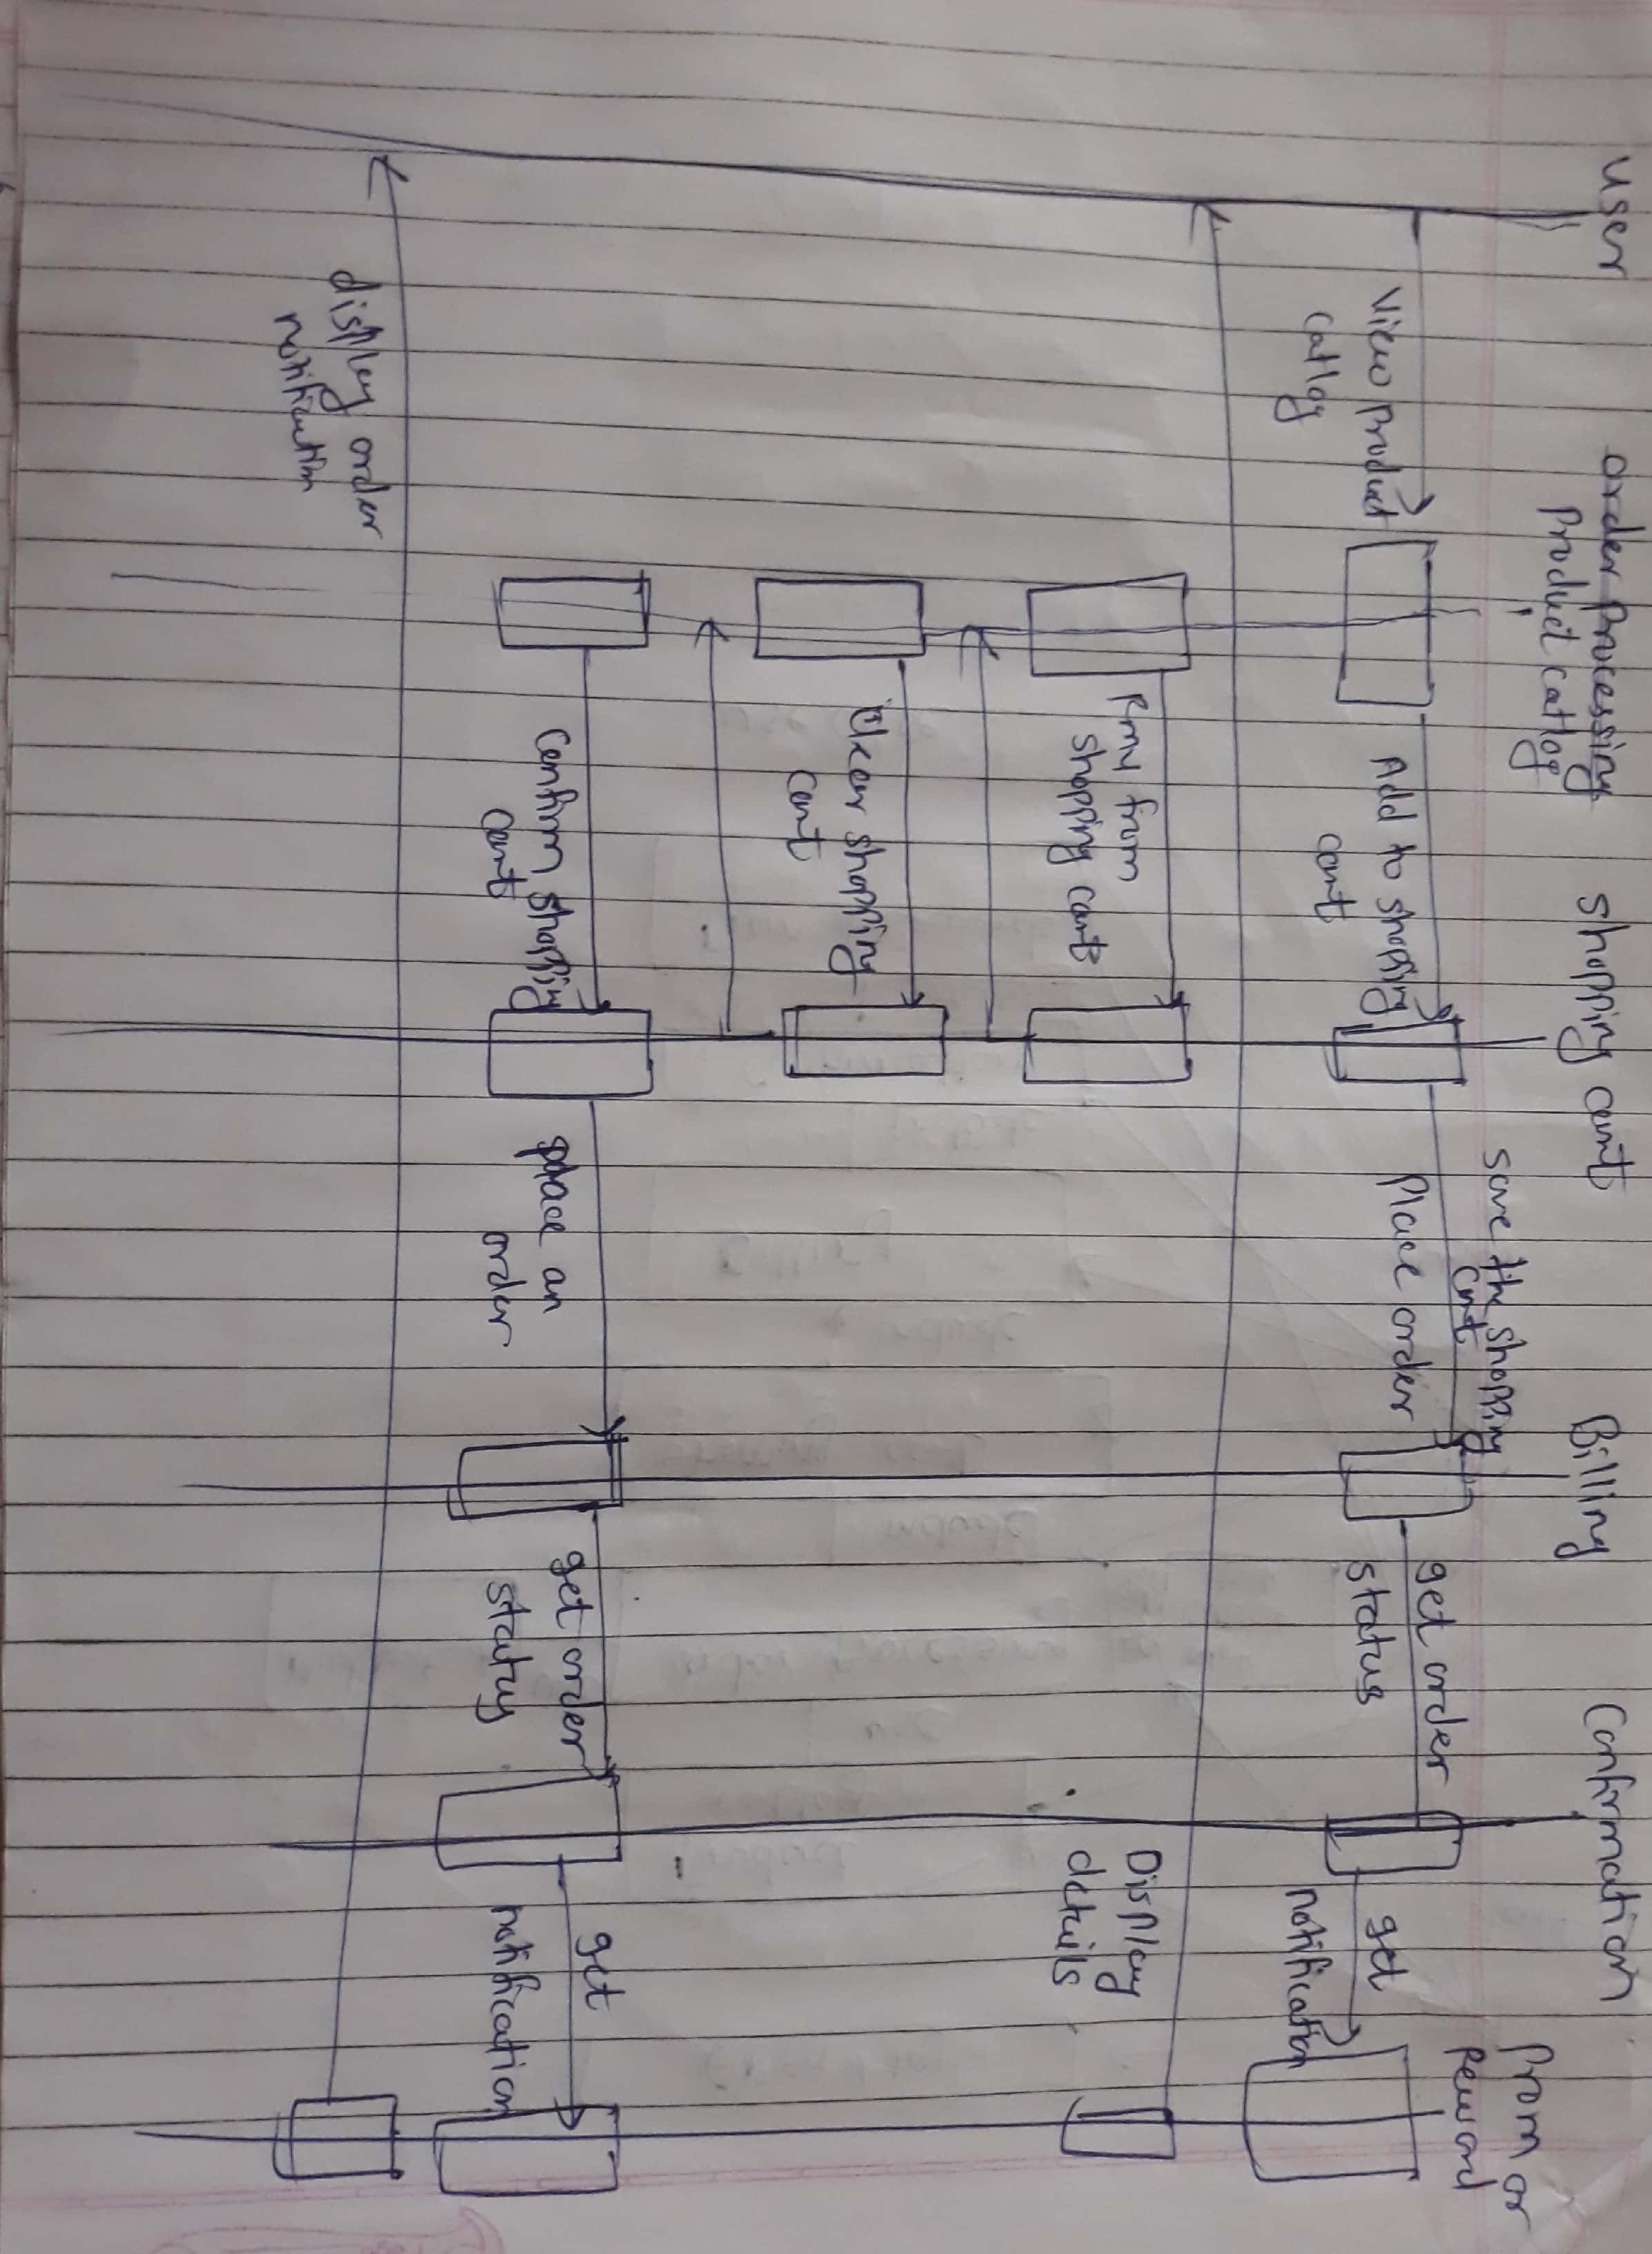 User
order processing
Product catlog
shopping cart
Billing
Confirmation
Prom or
Reward
View product
catlog
Add to shopping
cart
save the shopping
cart
Place order
get order
status
get
notification
Display
details
from
shopping cart
clear shopping
cart
Confirm shopping
cart
place an
order
get order
status
get
notification
display order
notification